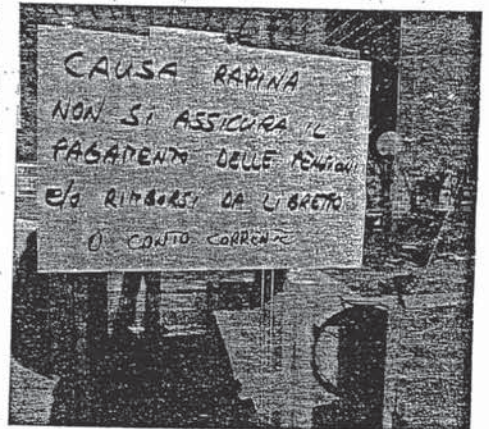 CAUSA RAPINA
NON SI ASSICURA IL
PAGAMENTO DELLE PENSIONI
E/O RIMBORSI DA LIBRETTO
O CONTO CORRENTE